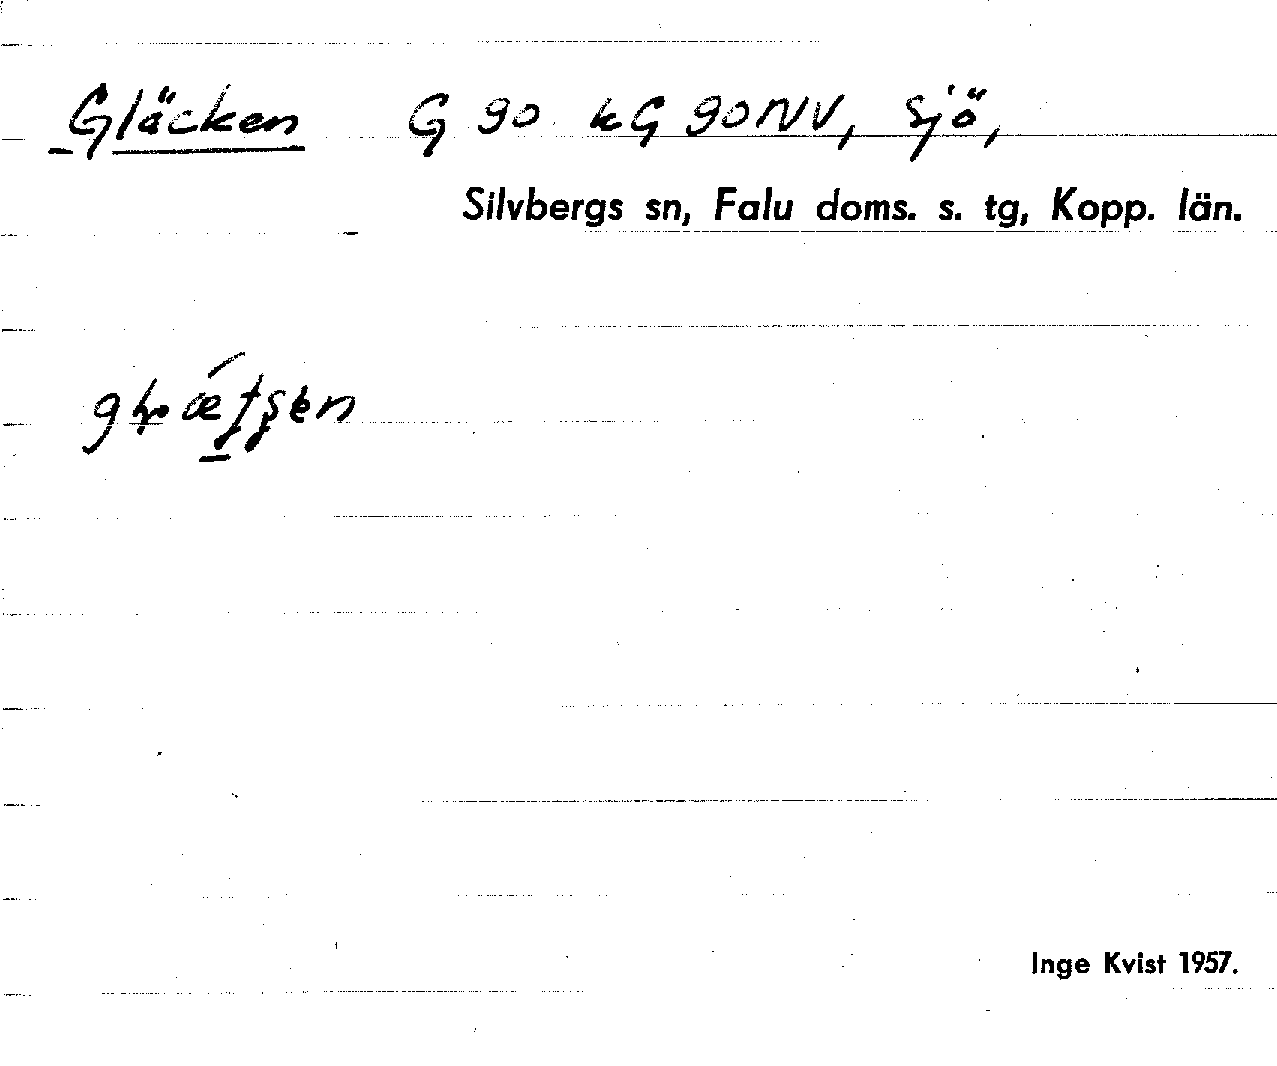 Gläcken G 90 kG 90NV, sjö,
Silvbergs sn, Falu doms. s. tg, Kopp. län.
Inge Kvist 1957.